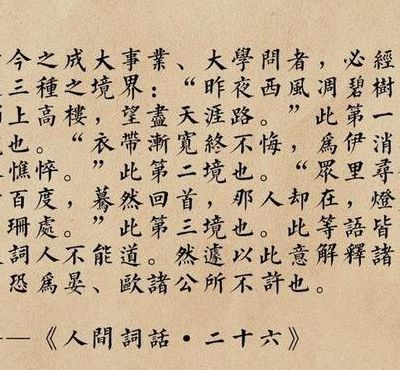 今之成大事業、大學問者，必經
三種之境界：“昨夜西風凋碧樹
上高樓，望盡天涯路。”此第一
也。“衣帶漸寬終不悔，爲伊消
憔悴。”此第二境也。“眾里尋
百度，驀然回首，那人却在，燈
珊處。”此第三境也。此等語皆
詞人不能道。然遽以此意解釋諸
恐爲晏、歐諸公所不許也。
——《人間詞話·二十六》